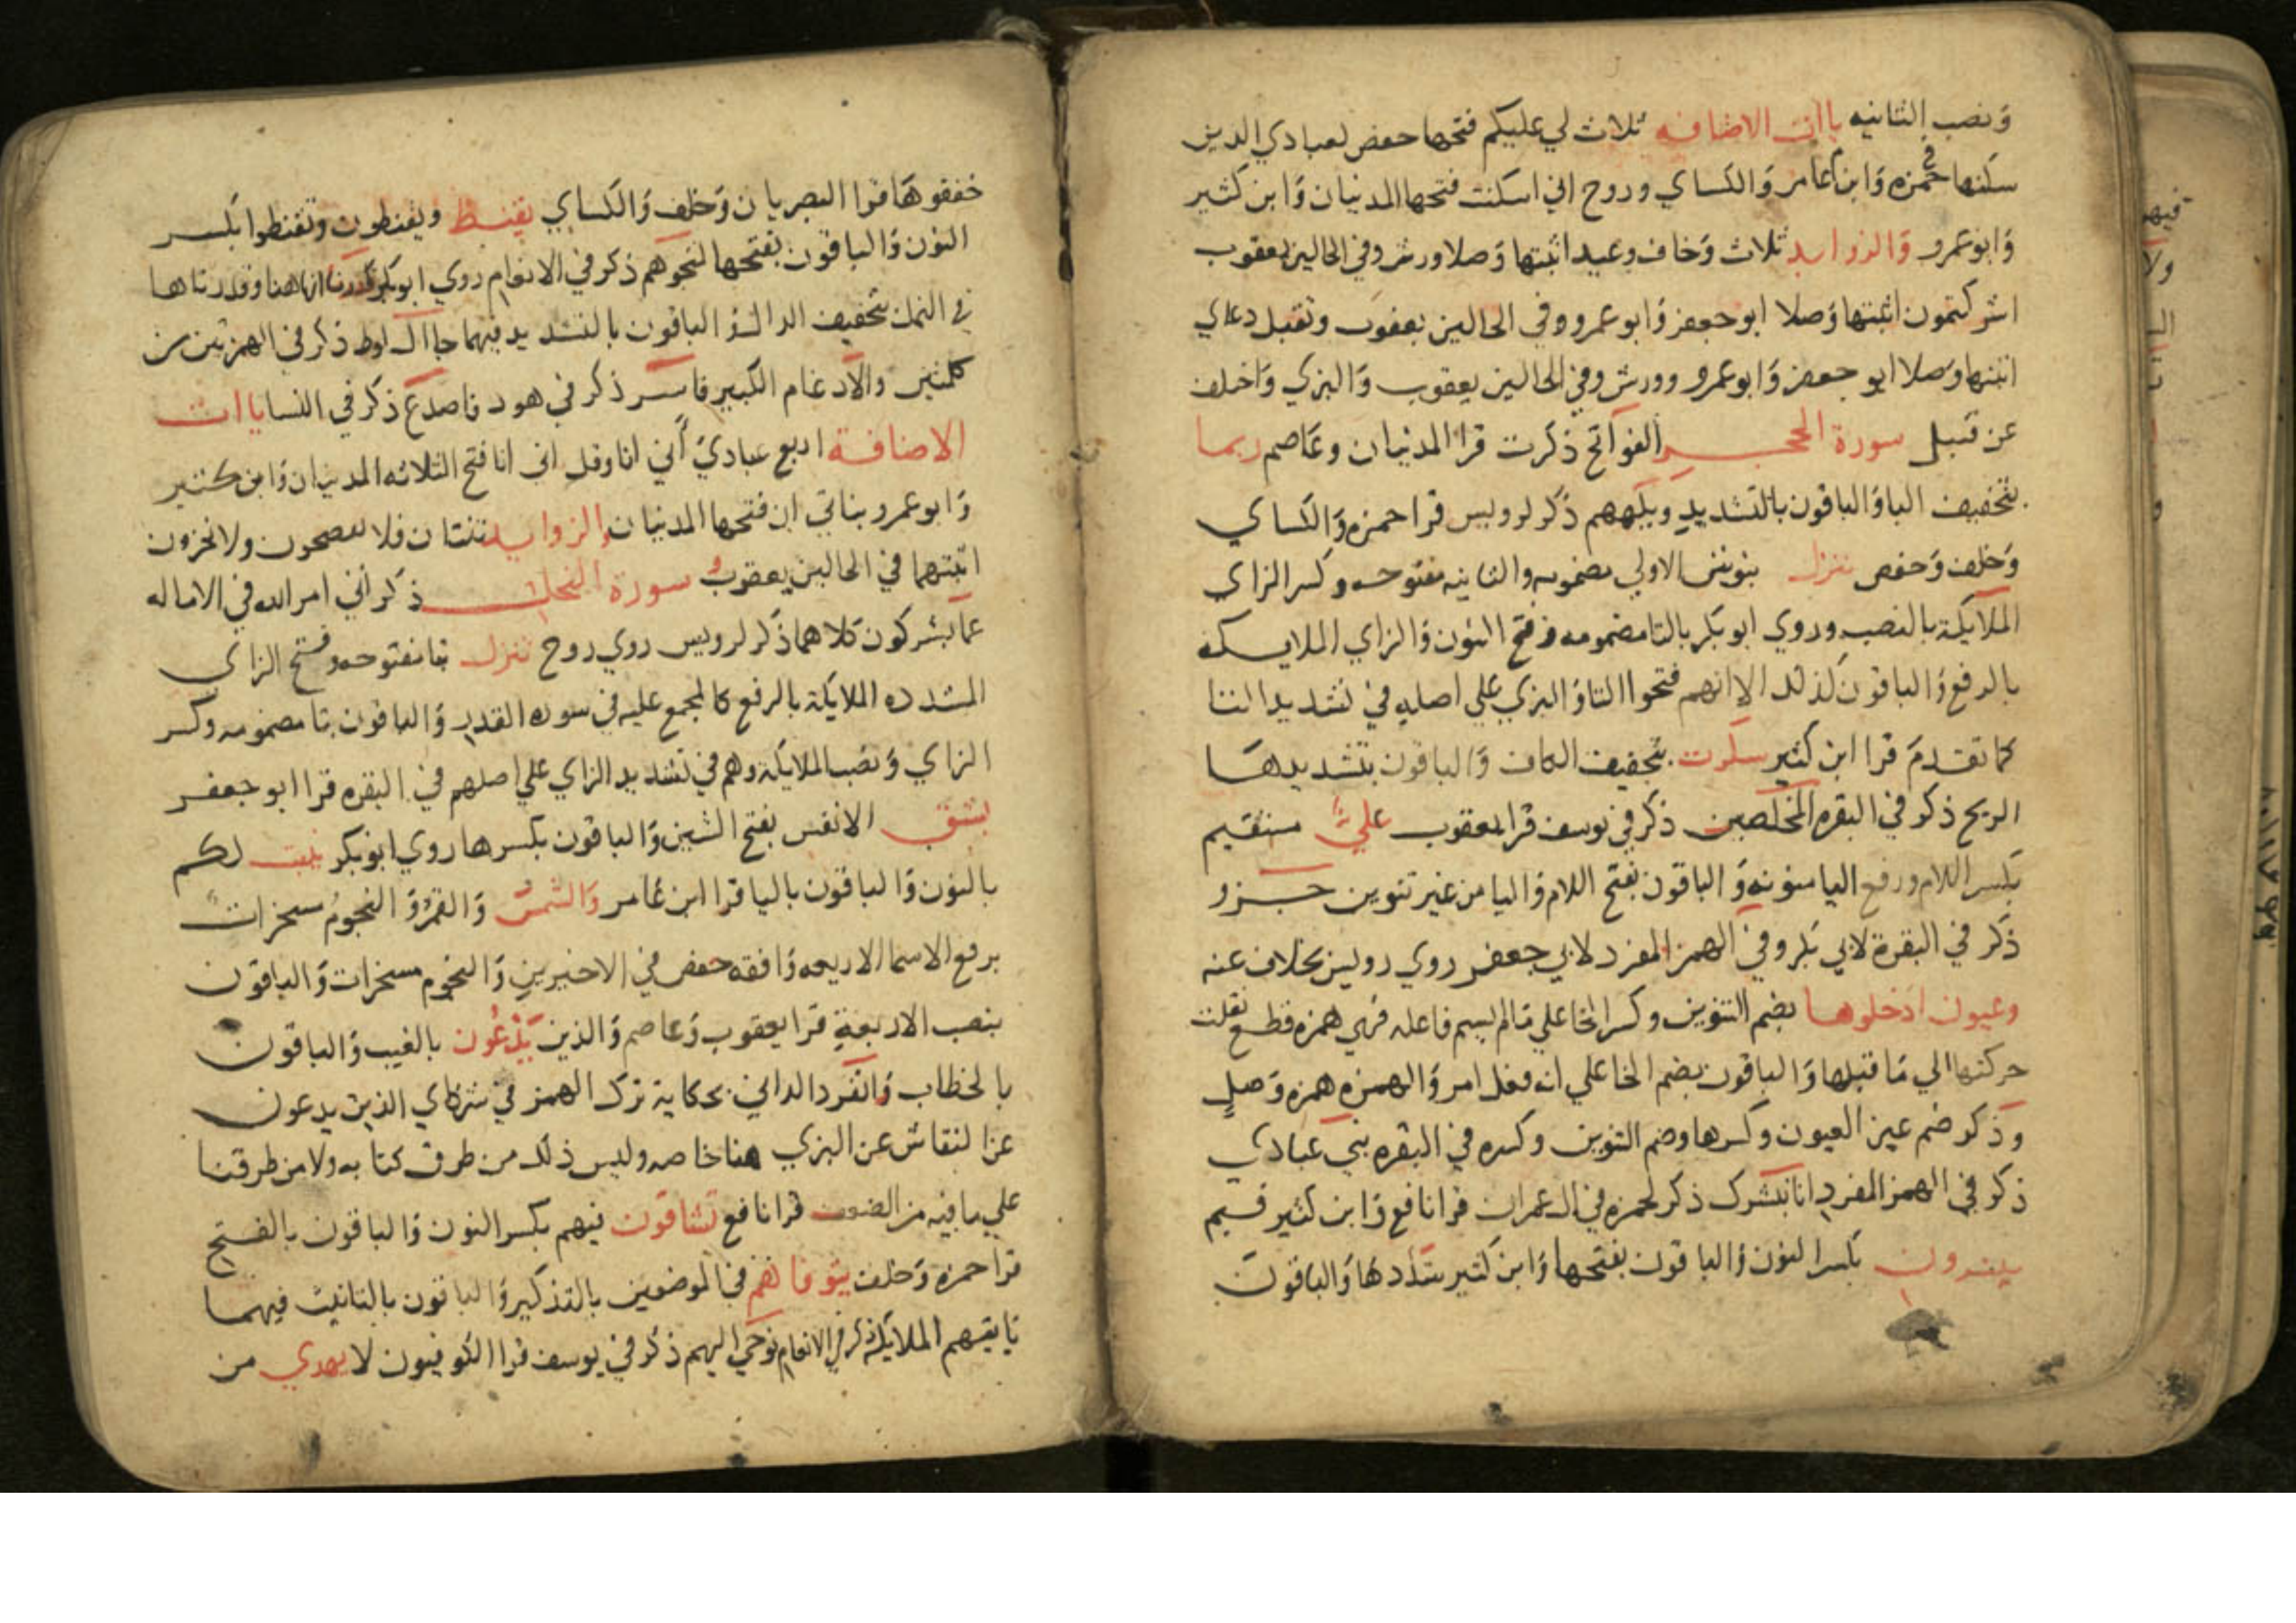 وَنصب الثانيه ياات الاضافه ثلاث لي عليكم فتحها حفص لعبادي الدين
سكنها حمزه وَابن عامر وَالكساي وروح اني اسكنت فتحها المدنيان وَابن كثير
وَابو عمرو وَالزوايد ثلاث وَخاف وعيد اثبتها وَصلا ورش وفي الحالين يعقوب
اشركتمون اثبتها وَصلا ابو جعفر وَابو عمرو وفي الحالين يعقوب وتقبل دعاي
اثبتها وَصلا ابو جعفر وَابو عمرو وورش وفي الحالين يعقوب وَالبزي وَاختلف
عن قنبل سورة الحجر الفواتح ذكرت قرا المدنيان وعَاصم ربما
بتخفيف البا وَالباقون بالتشديد ويلههم ذكر لرويس قرا حمزه وَالكساي
وَخلف وَحفص ننزل بنونين الاولي مضمومه والثانيه مفتوحه وكسر الزاي
الملايكة بالنصب وروي ابو بكر بالتا مضمومه وفتح النون وَالزاي الملايكه
بالرفع وَالباقون كذلك الا انهم فتحوا التا وَالبزي علي اصله في تشديد التا
كما تقدمَ قرا ابن كثير سكرت بتخفيف الكاف وَالباقون بتشديدها
الريح ذكر في البقره المخلصين ذكر في يوسف قرا يعقوب عليٌّ مستقيم
بكسر اللام ورفع اليا منونه وَالباقون بفتح اللام وَاليا من غير تنوين جزو
ذكر في البقرة لابي بكر وفي الهمز المفرد لابي جعفر روي رويس بخلاف عنه
وعيون ادخلوها بضم التنوين وكسر الخا علي مَا لم يسم فاعله فهي همزه قطع نقلت
حركتها الي مَا قبلها وَالباقون بضم الخا علي انه فعل امر وَالهمزه همزه وَصلٍ
وَذكر ضم عين العيون وكسرها وضم التنوين وكسره في البقره نبي عبادي
ذكر في الهمز المفرد انا نبشرك ذكر لحمزه في ال عمران قرا نافع وَابن كثير فبم
تبشرون بكسر النون وَالباقون بفتحها وَابن كثير شددهَا وَالباقون
خففوهَا قرا البصريان وَخلف وَالكساي يقنط ويقنطون وتقنطوا بكسر
النون وَالباقون بفتحها لمنجوهم ذكر في الانعام روي ابو بكر قدرنا انها هنا وقدرناها
في النمل بتخفيف الدال وَالباقون بالتشديد فيهما جا ال لوط ذكر في الهمزتين من
كلمتين والادغام الكبير فاسر ذكر في هود فاصدع ذكر في النسا ياات
الاضافة اربع عبادي أني انا وقل اني انا فتح الثلاثه المدنيان وَابن كثير
وَابو عمرو بناتي ان فتحها المدنيان والزوايد ثنتان فلا تفضحون ولا تخزون
اثبتهما في الحالين يعقوب سورة النحل ذكر اتي امر الله في الاماله
عما يشركون كلاهما ذكر لرويس روي روح تنزل بتا مفتوحه وفتح الزاي
المشدده الملايكة بالرفع كالمجمع عليه في سوره القدر وَالباقون بتا مضمومه وكسر
الزاي وَنصب الملايكه وهم في تشديد الزاي علي اصلهم في البقره قرا ابو جعفر
بشق الانفس بفتح الشين وَالباقون بكسرها روي ابو بكر ينبت لكم
بالنون وَالباقون باليا قرا ابن عَامر وَالشمسُ وَالقمرُ وَالنجومُ مسخراتٌ
برفع الاسما الاربعه وَافقه حفص في الاخيرين وَالنجوم مسخرات وَالباقون
بنصب الاربعةِ قرا يعقوب وَعاصم وَالذين يَدْعُون بالغيب وَالباقون
بالخطاب وَانفرد الداني بحكاية ترك الهمز في شركاي الذين يدعون
عن النقاش عن البزي هنا خاصه وليس ذلك من طرق كتابه ولا من طرقنا
علي ما فيه من الضعف قرا نافع تشاقون فيهم بكسر النون وَالباقون بالفتح
قرا حمزه وَخلف يتوفاهم في الموضعين بالتذكير وَالباقون بالتانيث فيهما
تايتهم الملايكة ذكر في الانعام نوحي اليهم ذكر في يوسف قرا الكوفيون لا يهدي من